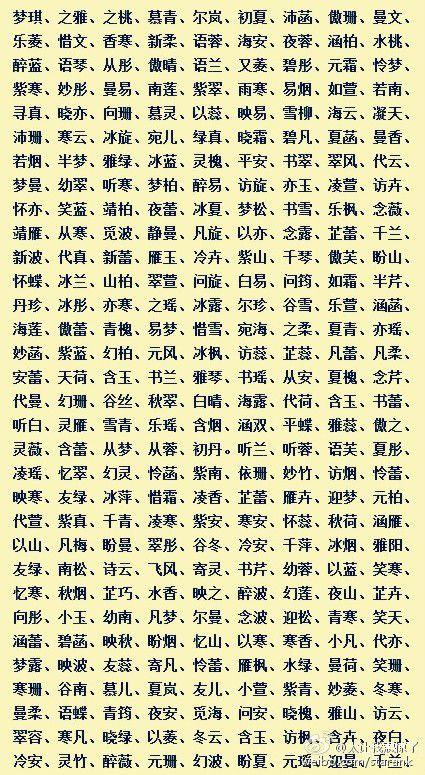 梦琪、之雅、之桃、慕青、尔岚、初夏、沛菡、傲珊、曼文、
乐菱、惜文、香寒、新柔、语蓉、海安、夜蓉、涵柏、水桃、
醉蓝、语琴、从彤、傲晴、语兰、又菱、碧彤、元霜、怜梦、
紫寒、妙彤、曼易、南莲、紫翠、雨寒、易烟、如萱、若南、
寻真、晓亦、向珊、慕灵、以蕊、映易、雪柳、海云、凝天、
沛珊、寒云、冰旋、宛儿、绿真、晓霜、碧凡、夏菡、曼香、
若烟、半梦、雅绿、冰蓝、灵槐、平安、书翠、翠风、代云、
梦曼、幼翠、听寒、梦柏、醉易、访旋、亦玉、凌萱、访卉、
怀亦、笑蓝、靖柏、夜蕾、冰夏、梦松、书雪、乐枫、念薇、
靖雁、从寒、觅波、静曼、凡旋、以亦、念露、芷蕾、千兰、
新波、代真、新蕾、雁玉、冷卉、紫山、千琴、傲芙、盼山、
怀蝶、冰兰、山柏、翠萱、问旋、白易、问筠、如霜、半芹、
丹珍、冰彤、亦寒、之瑶、冰露、尔珍、谷雪、乐萱、涵菡、
海莲、傲蕾、青槐、易梦、惜雪、宛海、之柔、夏青、亦瑶、
妙菡、紫蓝、幻柏、元风、冰枫、访蕊、芷蕊、凡蕾、凡柔、
安蕾、天荷、含玉、书兰、雅琴、书瑶、从安、夏槐、念芹、
代曼、幻珊、谷丝、秋翠、白晴、海露、代荷、含玉、书蕾、
听白、灵雁、雪青、乐瑶、含烟、涵双、平蝶、雅蕊、傲之、
灵薇、含蕾、从梦、从蓉、初丹。听兰、听蓉、语芙、夏彤、
凌瑶、忆翠、幻灵、怜菡、紫南、依珊、妙竹、访烟、怜蕾、
映寒、友绿、冰萍、惜霜、凌香、芷蕾、雁卉、迎梦、元柏、
代萱、紫真、千青、凌寒、紫安、寒安、怀蕊、秋荷、涵雁、
以山、凡梅、盼曼、翠彤、谷冬、冷安、千萍、冰烟、雅阳、
友绿、南松、诗云、飞风、寄灵、书芹、幼蓉、以蓝、笑寒、
忆寒、秋烟、芷巧、水香、映之、醉波、幻莲、夜山、芷卉、
向彤、小玉、幼南、凡梦、尔曼、念波、迎松、青寒、笑天、
涵蕾、碧菡、映秋、盼烟、忆山、以寒、寒香、小凡、代亦、
梦露、映波、友蕊、寄凡、怜蕾、雁枫、水绿、曼荷、笑珊、
寒珊、谷南、慕儿、夏岚、友儿、小萱、紫青、妙菱、冬寒、
曼柔、语蝶、青筠、夜安、觅海、问安、晓槐、雅山、访云、
翠容、寒凡、晓绿、以菱、冬云、含玉、访枫、含卉、夜白、
冷安、灵竹、醉薇、元珊、幻波、盼夏、元瑶、迎曼